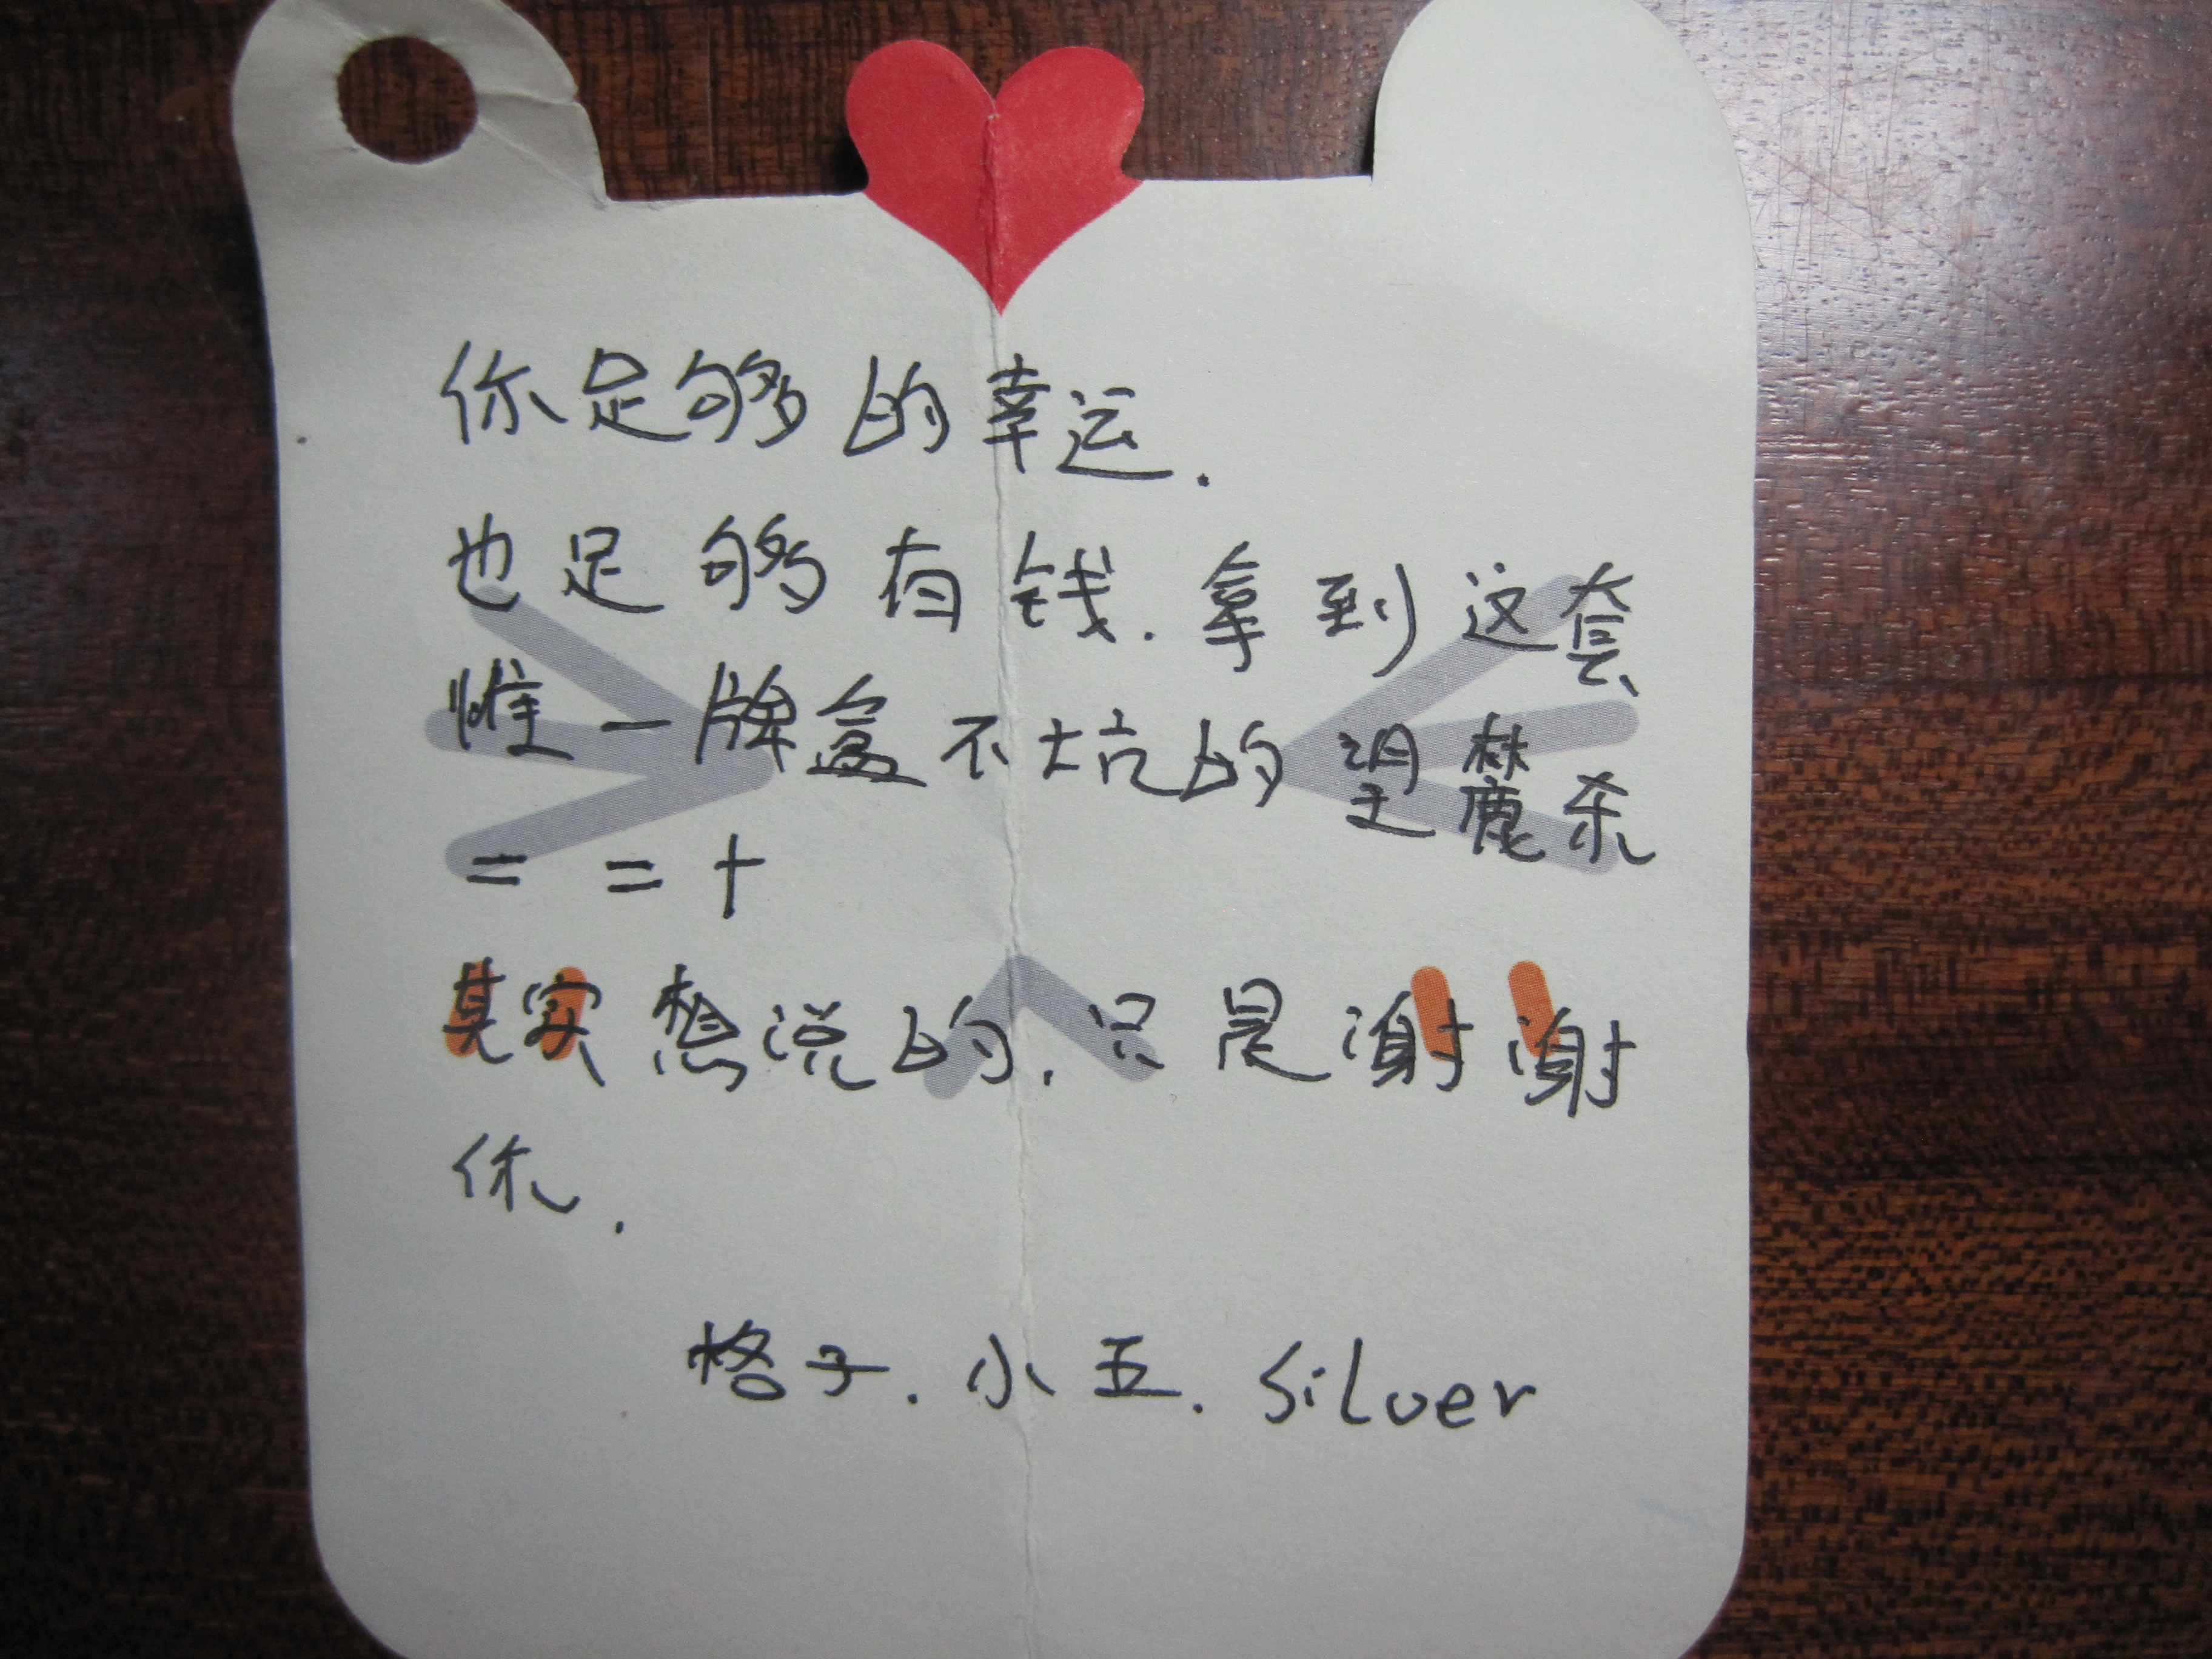 你足够的幸运.
也足够有钱.拿到这套
惟一牌盒不坑的望麓杀
= = +
其实想说的.只是谢谢
你.
格子.小五.Silver